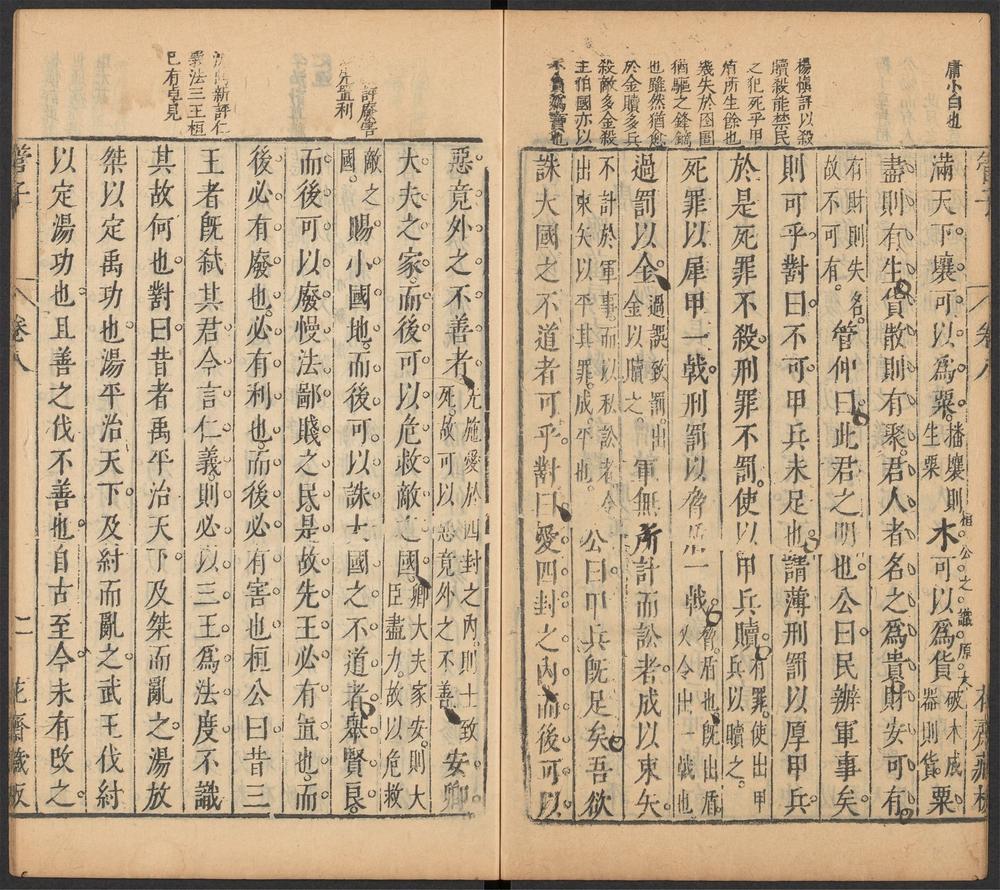 庸小白也
滿天下壤可以爲粟播壤則生粟木可以爲貨破木成器則貨粟
桓公之識原大
盡則有生貨散則有聚君人者名之爲貴財安可有
有財則失名故不可有管仲曰此君之明也公曰民辦軍事矣
則可乎對曰不可甲兵未足也請薄刑罰以厚甲兵
於是死罪不殺刑罪不罰使以甲兵贖有罪使出甲兵以贖之
死罪以犀甲一戟刑罰以脅盾一戟脅盾也旣出盾又令出一戟也
過罰以金過誤致罰出金以贖之軍無所計而訟者成以束矢
不計於軍事而以私訟者令出束矢以平其罪成平也公曰甲兵旣足矣吾欲
誅大國之不道者可乎對曰愛四封之內而後可以
楊愼評以殺
贖殺能禁民
之犯死乎甲
盾所生餘也
幾失於囹圄
猶驅之鋒鏑
也雖然猶愈
於金贖多兵
殺敵多金殺
主伯國亦以
惡竟外之不善者先施愛於四封之內則士致死故可以惡竟外之不善安卿
大夫之家而後可以危救敵之國卿大夫家安則大臣盡力故以危救
敵之國賜小國地而後可以誅大國之不道者舉賢良
而後可以廢慢法鄙賤之民是故先王必有置也而
後必有廢也必有利也而後必有害也桓公曰昔三
王者旣弒其君今言仁義則必以三王爲法度不識
其故何也對曰昔者禹平治天下及桀而亂之湯放
桀以定禹功也湯平治天下及紂而亂之武王伐紂
以定湯功也且善之伐不善也自古至今未有改之
新評仁
法三王桓
已有卓見
管子
卷八